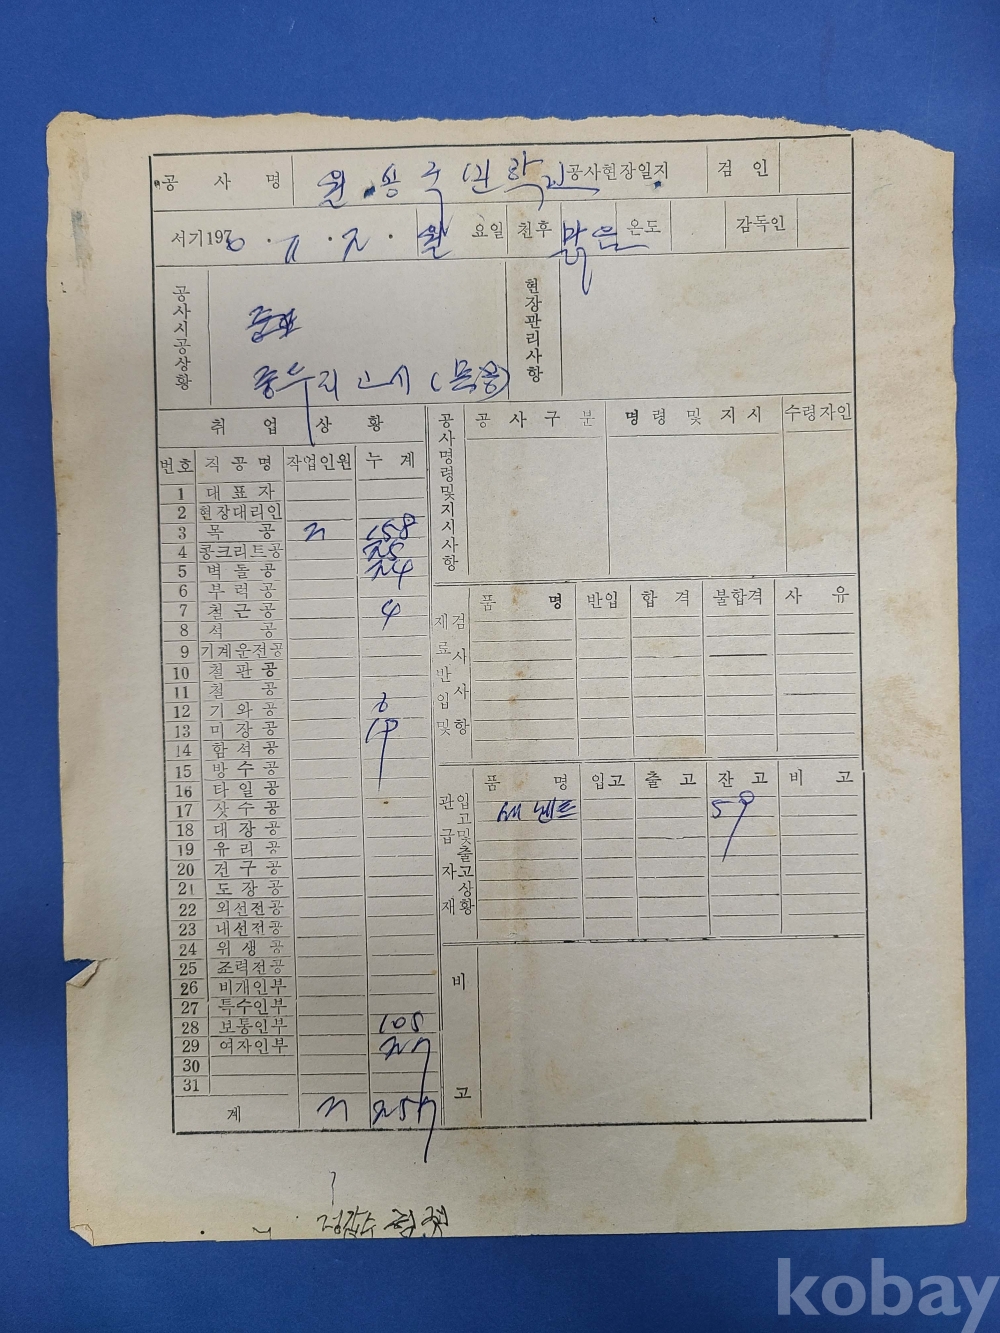 공 사 명 공사현장일지 검 인
서기197 월 요일 천후 맑음 온도 감독인
공사시공상황
현장관리사항
취 업 상 황
번호 직공명 작업인원 누계
1 대표자
2 현장대리인
3 목 공 2 158
4 콩크리트공 25
5 벽돌공 24
6 부럭공
7 철근공 4
8 석 공
9 기계운전공
10 철판공
11 철 공
12 기와공 6
13 미장공 19
14 함석공
15 방수공
16 타일공
17 삿수공
18 대장공
19 유리공
20 건구공
21 도장공
22 외선전공
23 내선전공
24 위생공
25 죠력전공
26 비개인부
27 특수인부
28 보통인부 105
29 여자인부 27
30
31
계 2 257
공사명령및지시사항
공 사 구 분 명령 및 지시 수령자인
재료반입및 검사사항
품 명 반입 합 격 불합격 사 유
관급자재 입고및출고상황
품 명 입고 출 고 잔 고 비 고
세멘트 59
비
고
kobay